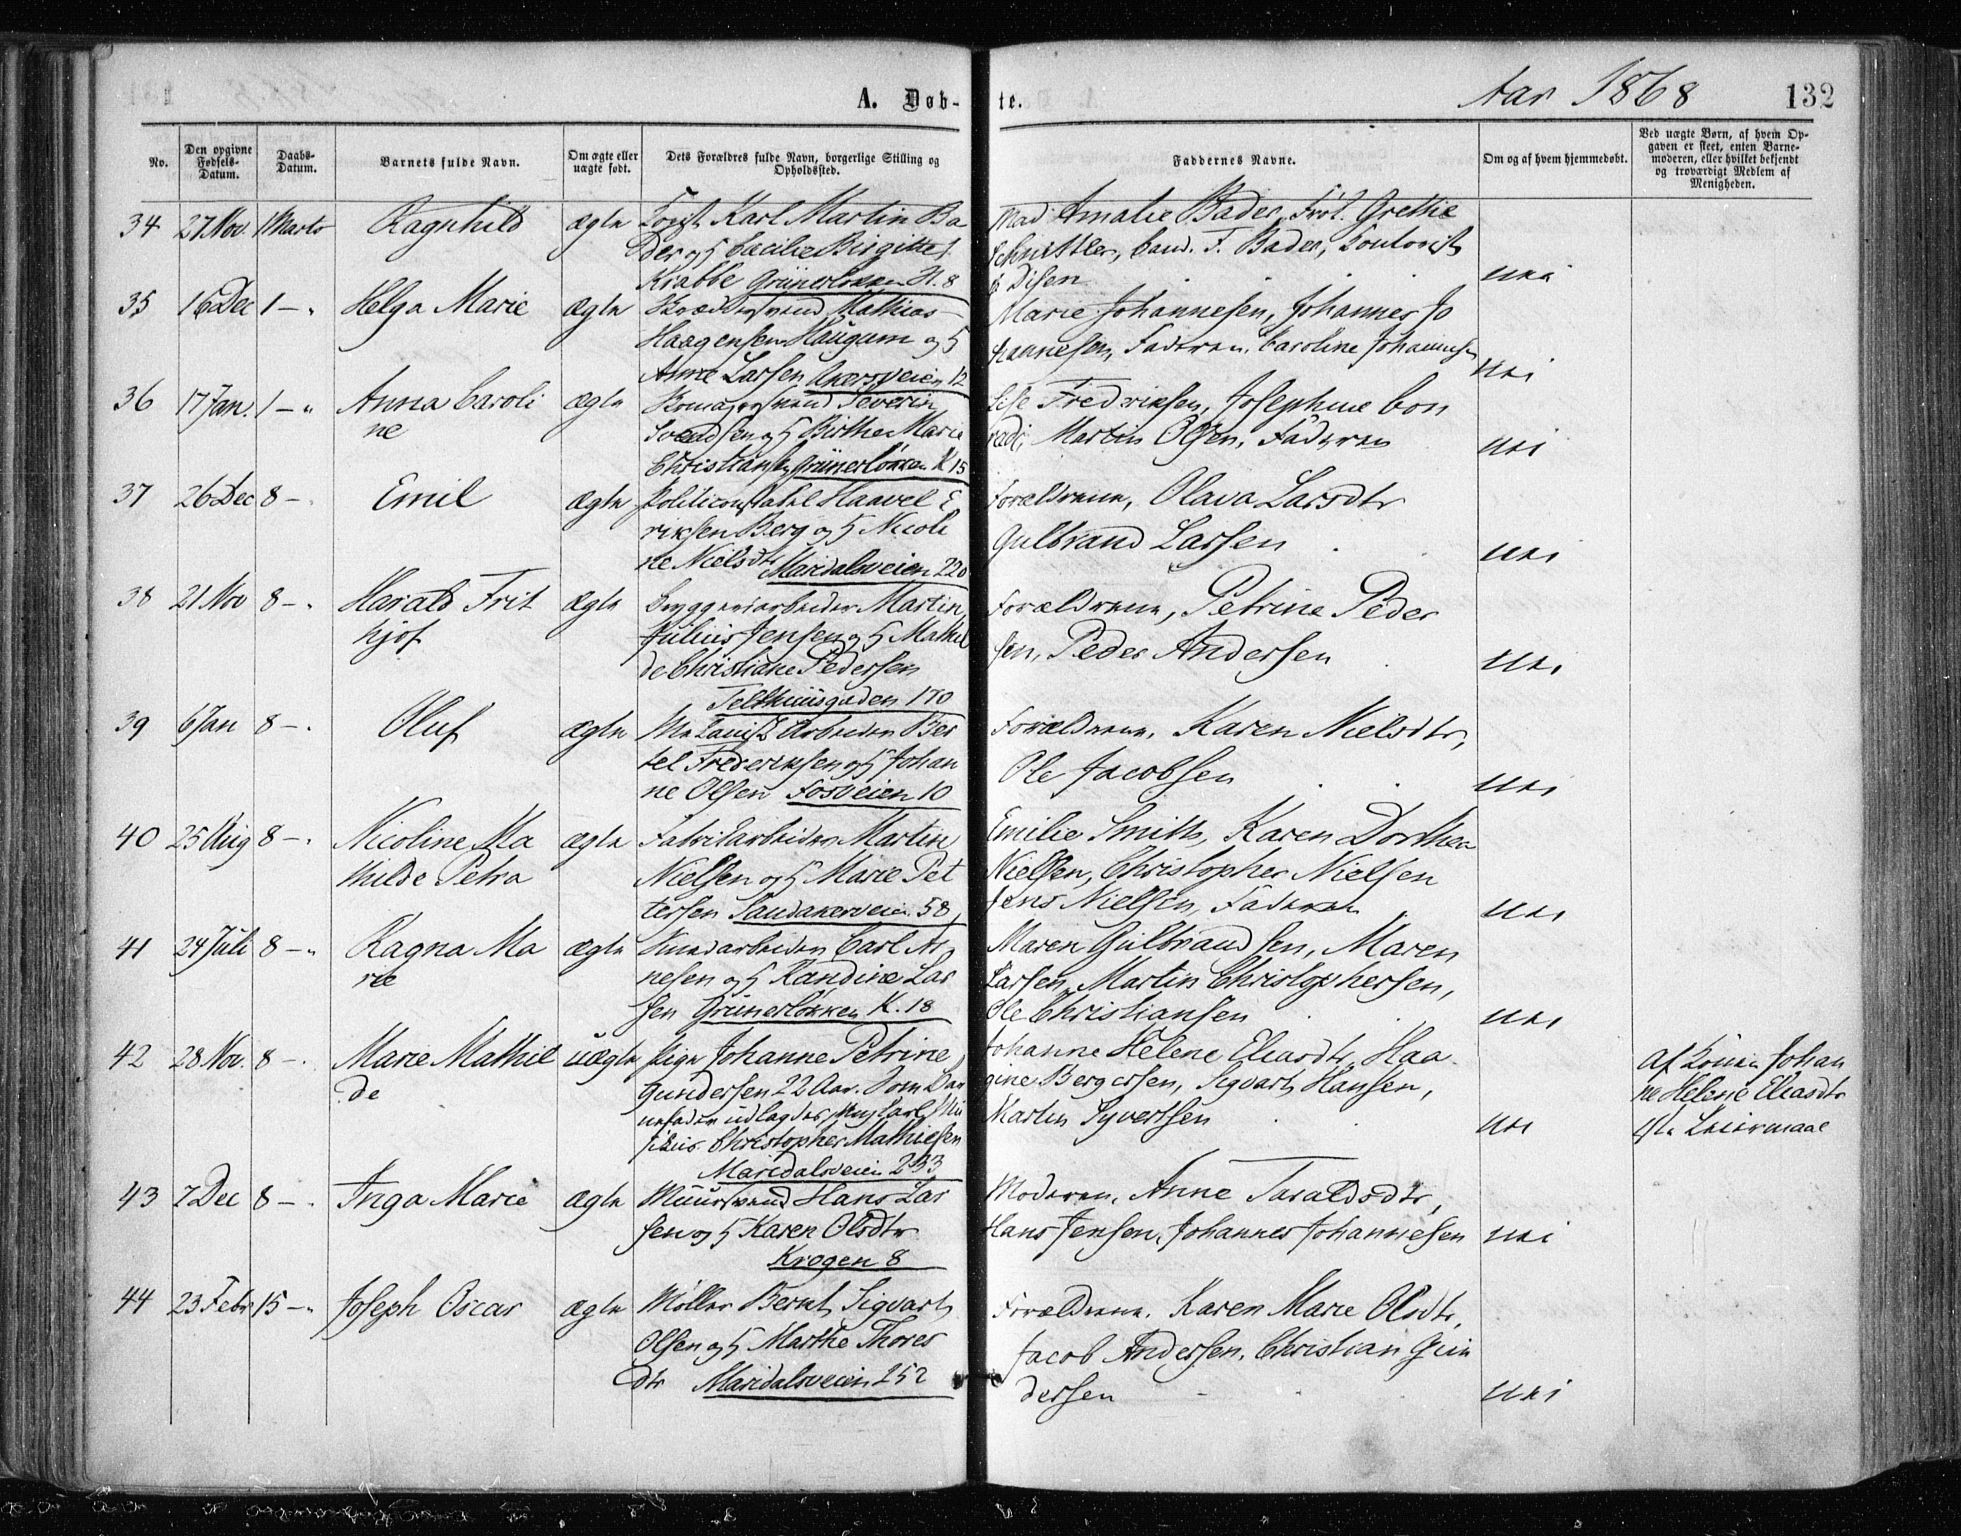 A. Døb-
te.
Aar 1868
132
No.
Den opgivne Fødsels-Datum.
Daabs-Datum.
Barnets fulde Navn.
Om ægte eller uægte født.
Dets Forældres fulde Navn, borgerlige Stilling og Opholdssted.
Faddernes Navne.
Om og af hvem hjemmedøbt.
Ved uægte Børn, af hvem Op-
gaven er skeet, enten Barne-
moderen, eller hvilket bekjendt
og troværdigt Medlem af
Menigheden.
34 27 Nov 1 Marts Ragnhild ægte Karl Martin Ba
der og H Cecilie Birgitte
Krabbe Grünerløkken H. 8
Mad. Amalie Bader, Frøk. Grethe
Schnittler, Cand. F. Bader,
Disen nei
35 16 Dec 1 – " Helga Marie ægte Mathias
Haagensen Haugum og H
Anne Larsen Akersveien 12
Marie Johannesen, Johannes Jo
hannesen, Faderen, Caroline Johannesen
nei
36 17 Jan. 1 – " Anna Caroli
ne
ægte Severin
Svendsen og H Birthe Marie
Christiansen Grünerløkken K 15
Lise Fredriksen, Josephine Con
radi, Martin Olsen, Faderen nei
37 26 Dec 8 – " Emil ægte Politiconstabel Haavel E
riksen Berg og H Nicoli
ne Nielsdtr Maridalsveien 220
Forældrene, Olava Larsdtr
Gulbrand Larsen nei
38 21 Nov 8 – " Harald Frit
hjof
ægte Bryggeriarbeider Martin
Julius Jensen og H Mathil
de Christiane Pedersen
Telthuusgaden 170
Forældrene, Petrine Peder
sen, Peder Andersen nei
39 6 Jan 8 – " Oluf ægte Mekanisk Arbeider Ber
tel Frederiksen og H Johan
ne Olsen Fosveien 10
Forældrene, Karen Nielsdtr,
Ole Jacobsen nei
40 25 Aug 8 – " Nicoline Ma
thilde Petra
ægte Fabrikarbeider Martin
Nielsen og H Marie Pet
tersen Sandakerveien 58
Emilie Smith, Karen Dorthea
Nielsen, Christopher Nielsen
Jens Nielsen, Faderen nei
41 24 Juli 8 – " Ragna Ma
rie
ægte Carl Ar
nesen og H Randine Lar
sen Grünerløkken K. 18
Maren Gulbrandsen, Maren
Larsen, Martin Christophersen,
Ole Christiansen nei
42 28 Nov. 8 – " Marie Mathil
de
uægte Pige Johanne Petrine
Gundersen 22 Aar. Som Bar
nefader udlagdes Ung Carl
Christopher Mathiesen
Maridalsveien 233
Johanne Helene Eliasdtr, Haa
gine Bergersen, Sigvart Hansen,
Martin Syvertsen nei
Af Konen Johan
ne Helene Eliasdtr
1ste Leiermaal
43 7 Dec 8 – " Inga Marie ægte Muursvend Hans Lar
sen og H Karen Olsdtr
Krogen 8
Moderen, Anne Taraldsdtr,
Hans Jensen, Johannes Johannesen nei
44 23 Febr 15 – " Joseph Oscar ægte Møller Bernt Sigvart
Olsen og H Marthe Thores
dtr Maridalsveien 252
Forældrene, Karen Marie Olsdtr,
Jacob Andersen, Christian Gun
dersen nei